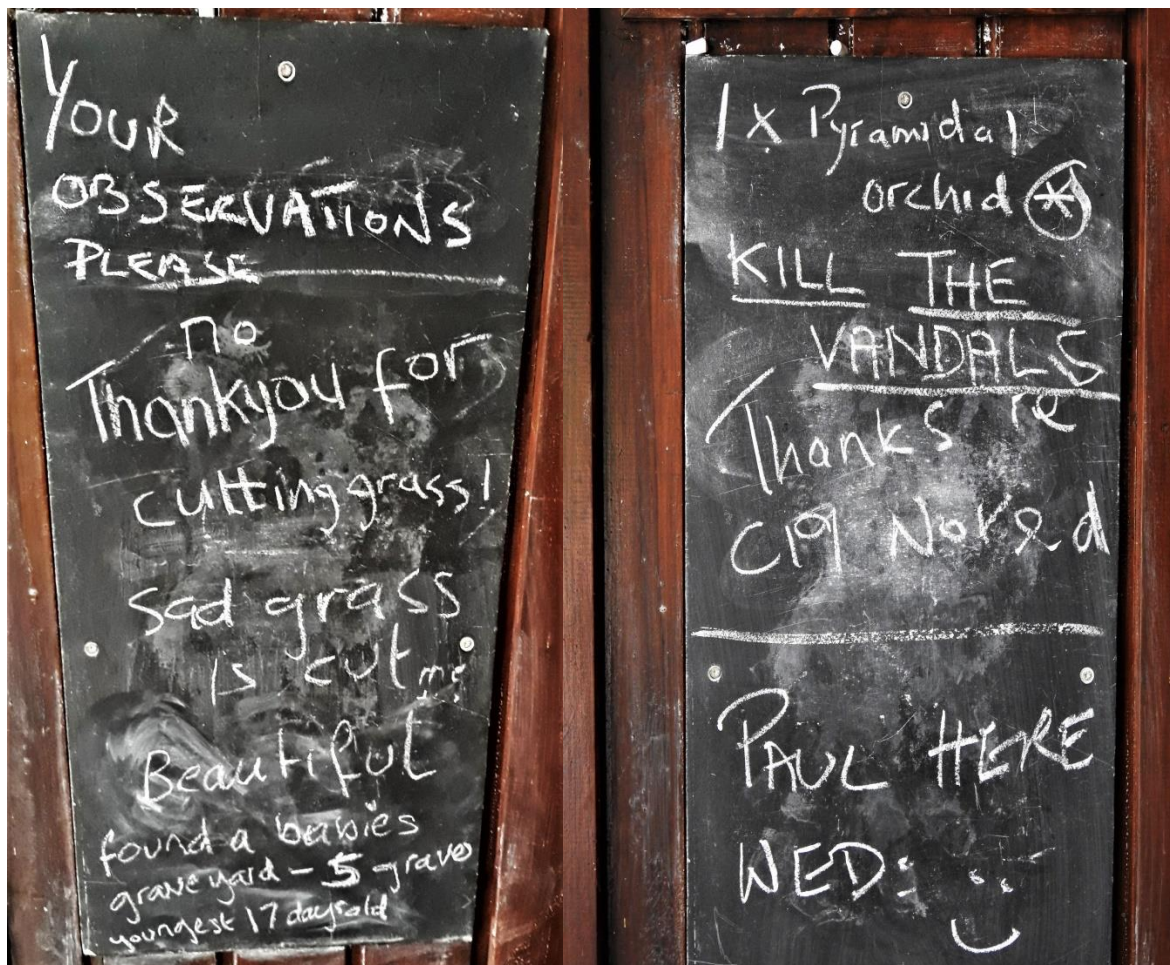 YOUR
OBSERVATIONS
PLEASE
no
Thankyou for
cutting grass!
sad grass
is cut
Beautiful
found a babies
grave yard - 5 graves
youngest 17 days old
1 x Pyramidal
orchid
KILL THE
VANDALS
Thanks re
cig Noted
PAUL HERE
WED: